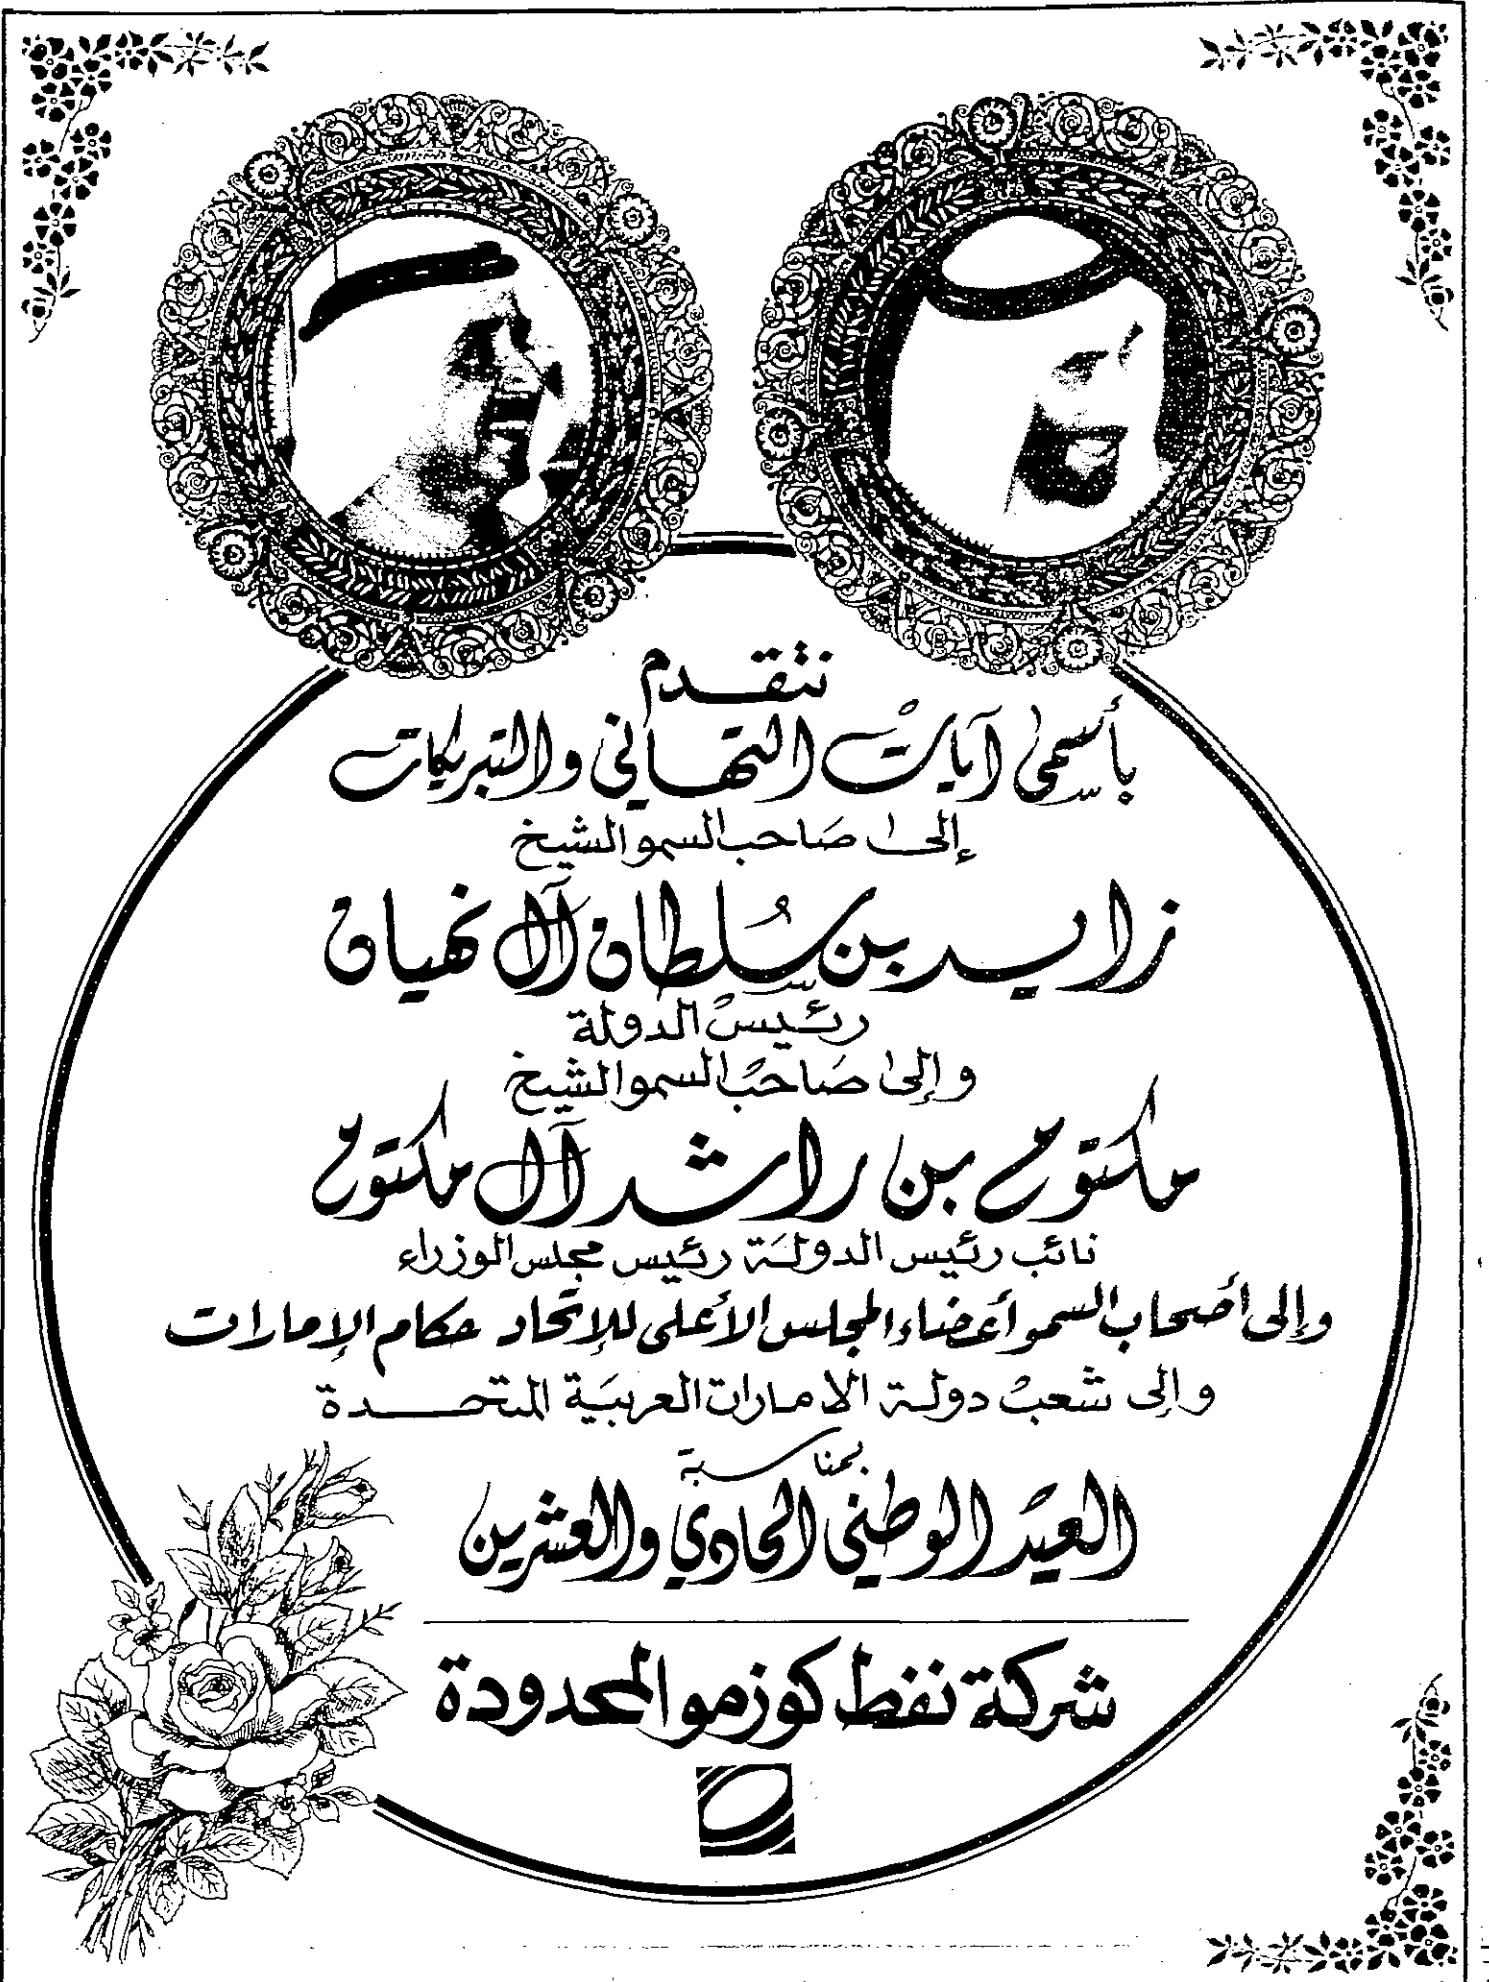 نتقدم
بأسمى آيات التهاني والتبريكات
إلى صاحب السمو الشيخ
زايد بن سلطان آل نهيان
رئيس الدولة
وإلى صاحب السمو الشيخ
مكتوم بن راشد آل مكتوم
نائب رئيس الدولة رئيس مجلس الوزراء
وإلى أصحاب السمو أعضاء المجلس الأعلى للإتحاد حكام الإمارات
وإلى شعب دولة الامارات العربية المتحدة
بمناسبة
العيد الوطني الحادي والعشرين
شركة نفط كوزمو المحدودة